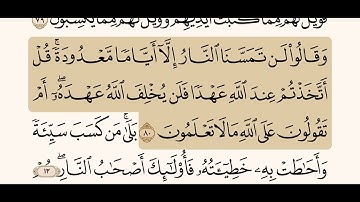 فَوَيْلٌ لَّهُم مِّمَّا كَتَبَتْ أَيْدِيهِمْ وَوَيْلٌ لَّهُم مِّمَّا يَكْسِبُونَ ٧٩
وَقَالُوا۟ لَن تَمَسَّنَا ٱلنَّارُ إِلَّآ أَيَّامًا مَّعْدُودَةً ۚ قُلْ
أَتَّخَذْتُمْ عِندَ ٱللَّهِ عَهْدًا فَلَن يُخْلِفَ ٱللَّهُ عَهْدَهُۥٓ ۖ أَمْ
تَقُولُونَ عَلَى ٱللَّهِ مَا لَا تَعْلَمُونَ ٨٠ بَلَىٰ مَن كَسَبَ سَيِّئَةً
وَأَحَٰطَتْ بِهِۦ خَطِيٓـَٔتُهُۥ فَأُو۟لَٰٓئِكَ أَصْحَٰبُ ٱلنَّارِ ۖ هُمْ
١٢